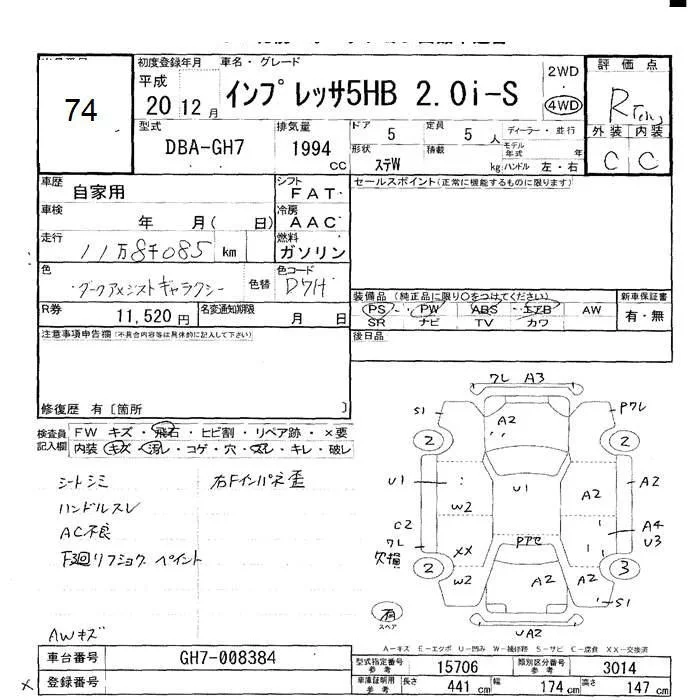 74
初度登録年月
平成
20 12月
車名・グレード
インプレッサ5HB 2.0i-S
2WD
4WD
評価点
R
外装 内装
C C
型式
DBA-GH7
排気量
1994
CC
ドア 5
定員 5 人
ディーラー・並行
形状 ステW
積載 kg
モデル年式 年
ハンドル 左・右
車歴
自家用
シフト
FAT
セールスポイント(正常に機能するものに限ります)
車検
年 月( 日)
冷房
AAC
走行
11万8千085 km
燃料
ガソリン
色
ダークアメジストギャラクシー
色替
色コード
D7H
R券
11,520円
名変通知期限
月 日
装備品 (純正品に限り○をつけてください)
PS・PW・ABS・エアB・AW
SR ナビ TV カワ
新車保証書
有・無
注意事項申告欄(不具合内容等は具体的に記入して下さい)
後日品
修復歴 有〔箇所 〕
検査員
記入欄
FW キズ・飛石・ヒビ割・リペア跡・×要
内装・キズ・汚レ・コゲ・穴・スレ・キレ・破レ
シートシミ
右Fインパネ歪
ハンドルスレ
AC不良
ペイント
AWキズ
ワレ A3
S1
A2
Pワレ
2
2
U1
U1
A2
A2
W2
C2
ワレ
欠損
XX
Pアセ
A4
U3
2
W2
A2
A2
3
S1
有
スペア
UA2
A-キズ E-エクボ U-凹み W-補修跡 S-サビ C-腐食 XX-交換済
車台番号
GH7-008384
登録番号
×
型式指定番号
参考
15706
類別区分番号
参考
3014
車庫証明用
参考
長さ 441 cm
幅 174 cm
高さ 147 cm